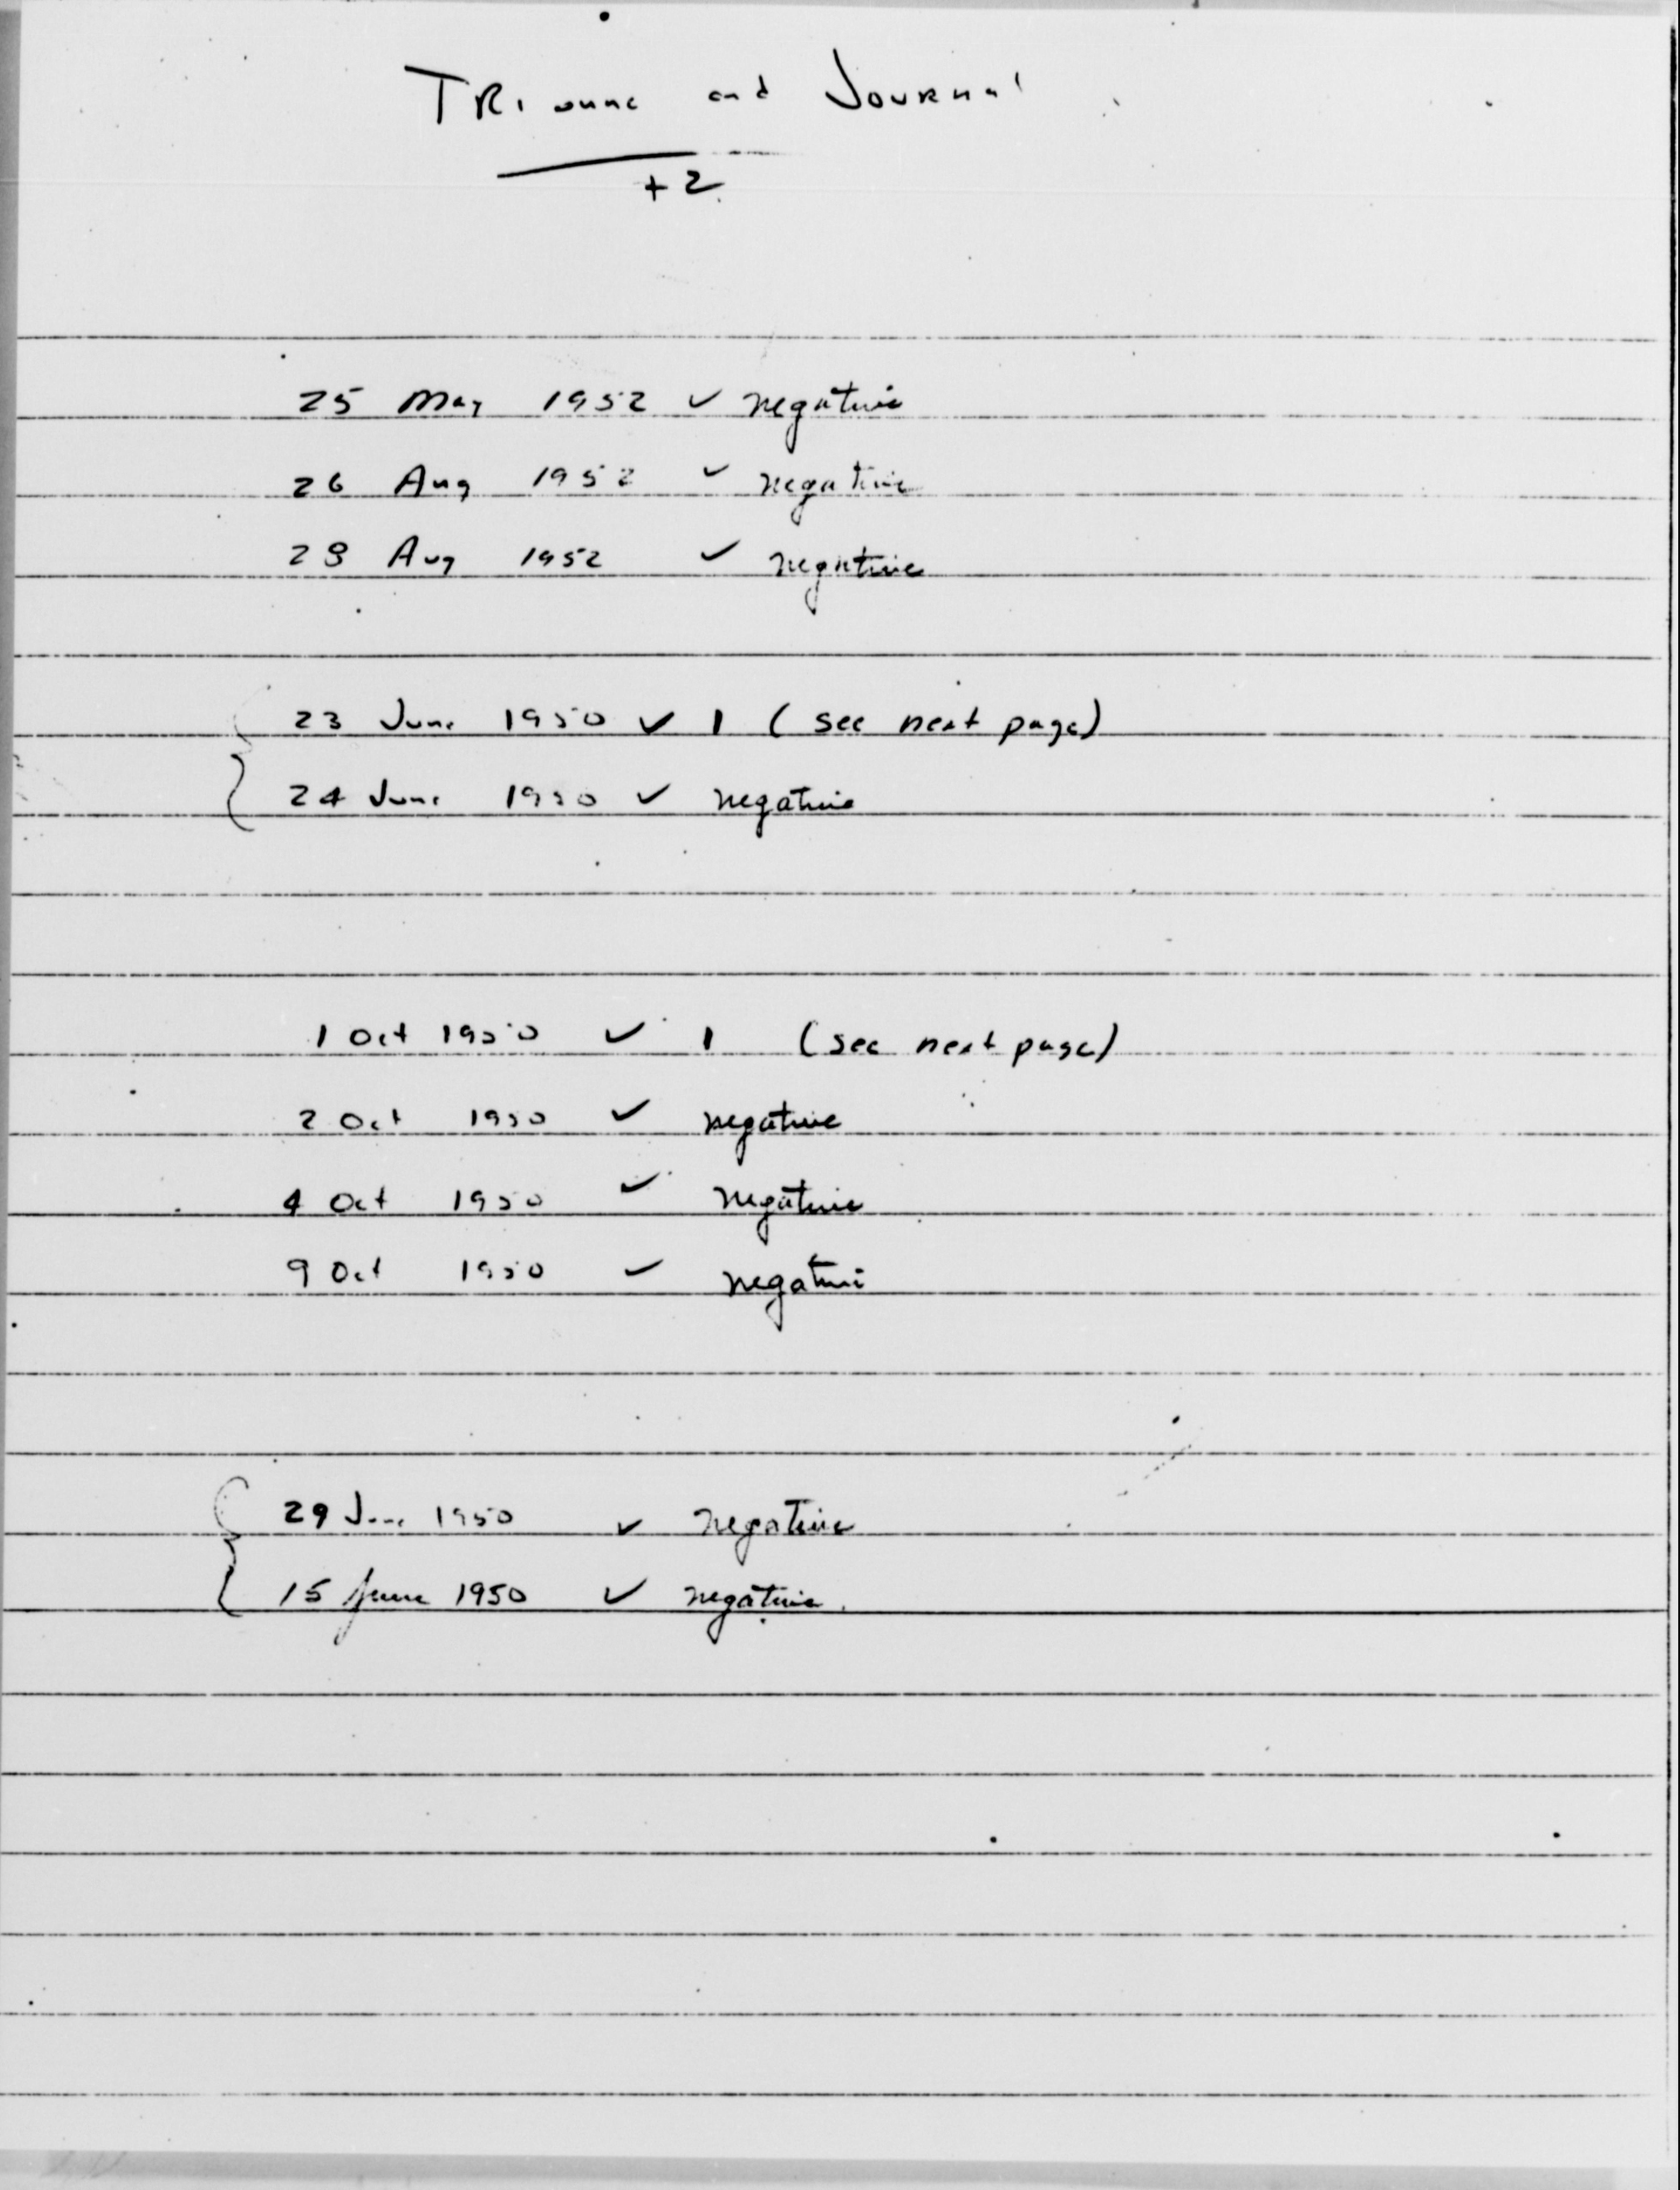 Tribune and Journal
+2
25 May 1952 ✓ negative
26 Aug 1952 ✓ negative
28 Aug 1952 ✓ negative
23 June 1950 ✓ 1 (see next page)
24 June 1950 ✓ negative
1 Oct 1950 ✓ 1 (see next page)
2 Oct 1950 ✓ negative
4 Oct 1950 ✓ negative
9 Oct 1950 ✓ negative
29 June 1950 ✓ negative
15 June 1950 ✓ negative.